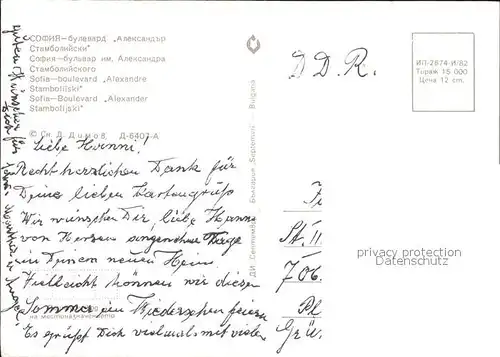 СОФИЯ—булевард „Александър
Стамболийски"
София—бульвар им. Александра
Стамболийского
Sofia—boulevard „Alexandre
Stambolijski"
Sofia—Boulevard „Alexander
Stambolijski"
© Сн. Д. Димов, Д-6407-А
D D R.
ИП-2874-И/82
Тираж 15 000
Цена 12 cm.
Liebe Hanni!
Recht herzlichen Dank für
Deine lieben Kartengruß
Wir wünschen Dir, liebe Hanni
von Herzen angenehme Tage
in Deinem neuen Heim.
Vielleicht können wir diesen
Sommer ein Wiedersehen feiern
Es grüßt Dich vielmals mit vielen
guten Wünschen für
Dich
на местоназначението
ДИ „Септември" България „Septemvri" Bulgaria
St. 11
706
Pl
privacy protection
VINTAGE-POSTCARD.COM